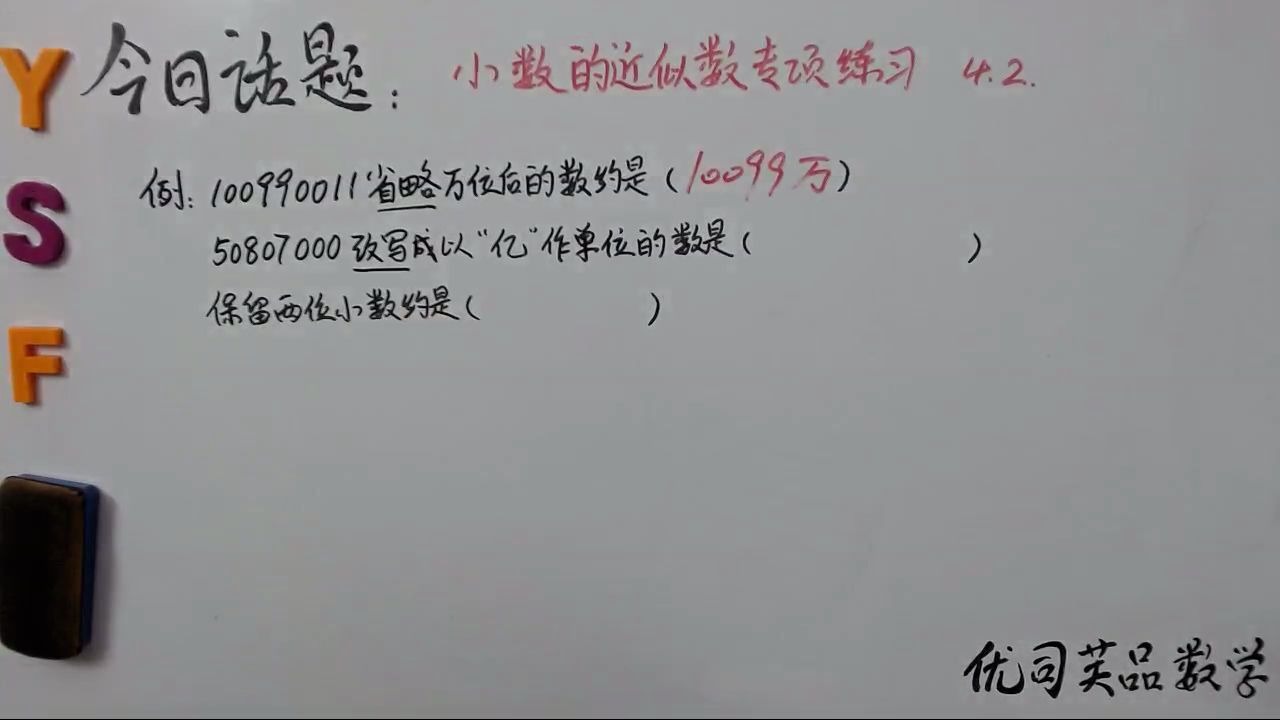 今日话题：小数的近似数专项练习 4.2.
例：100990011省略万位后的数约是（10099万）
50807000改写成以“亿”作单位的数是（ ）
保留两位小数约是（ ）
Y
S
F
优司芙品数学